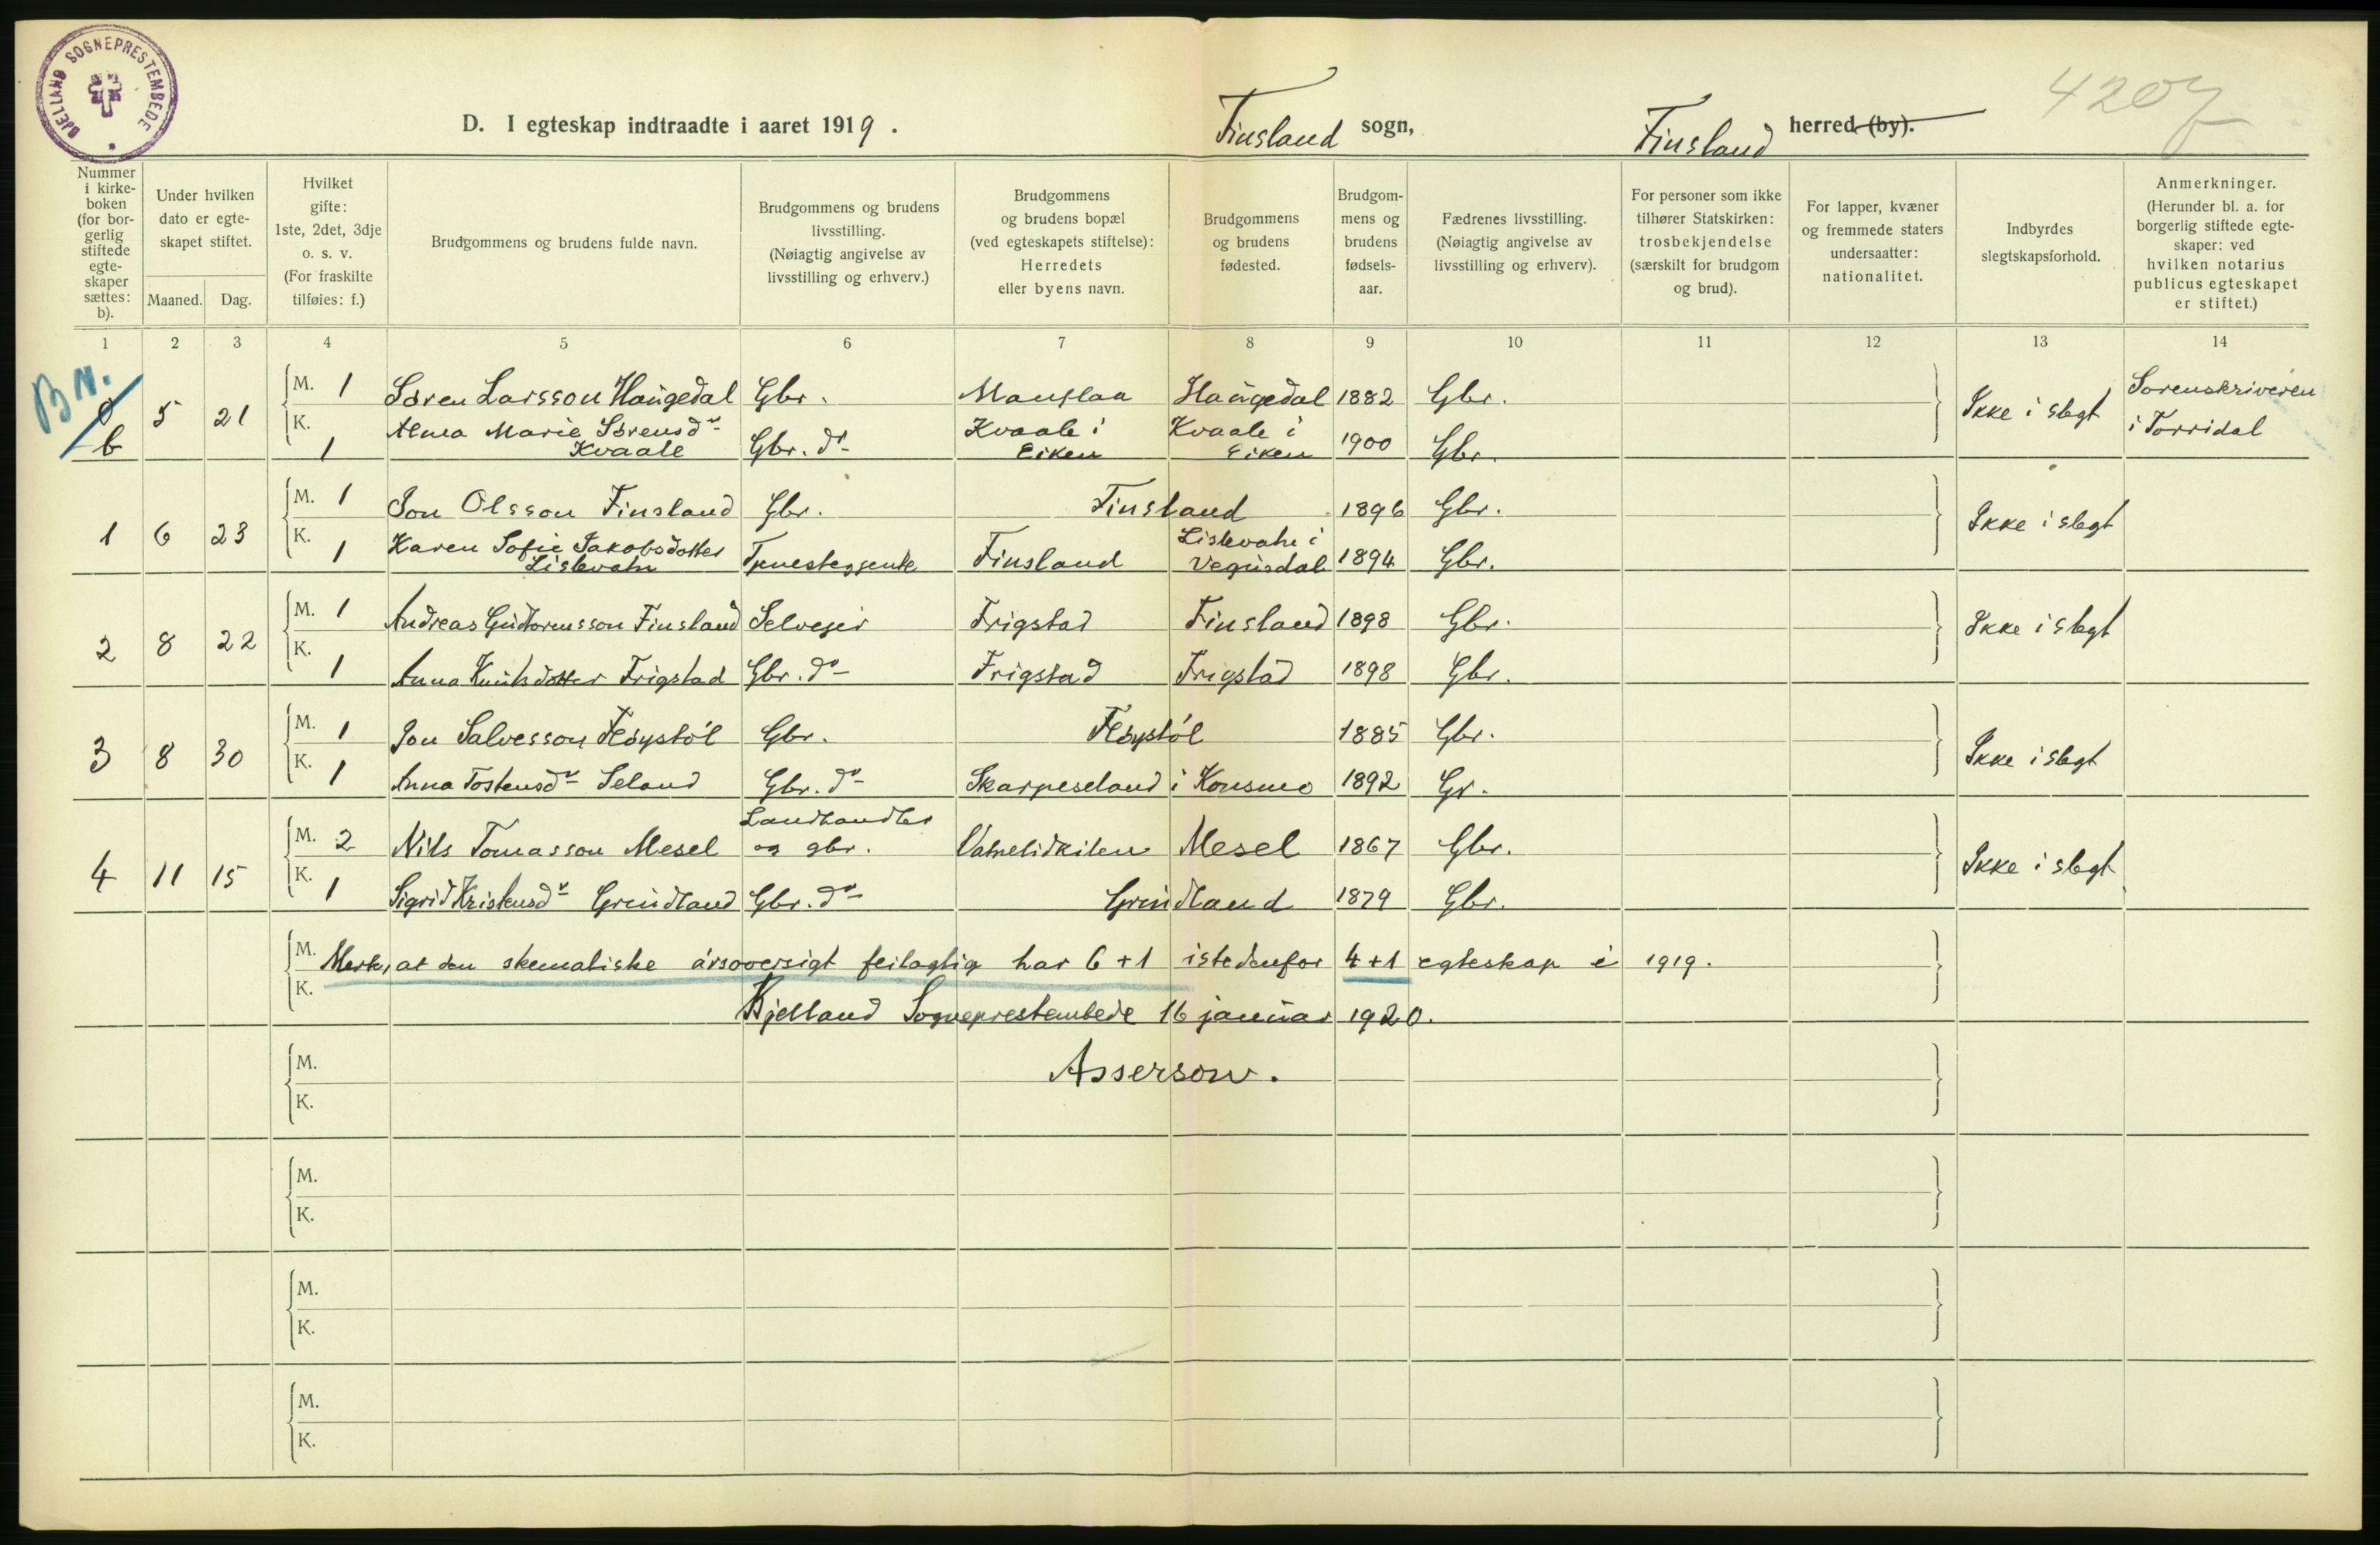 BJELLAND SOGNEPRESTEMBEDE
D. I egteskap indtraadte i aaret 1919.
Finsland sogn,
Finsland herred (by).
4207
Nummer i kirke-boken (for bor-gerlig stiftede egte-skaper sættes: b).
Under hvilken dato er egte-skapet stiftet.
Maaned. Dag.
Hvilket gifte: 1ste, 2det, 3dje o. s. v. (For fraskilte tilføies: f.)
Brudgommens og brudens fulde navn.
Brudgommens og brudens livsstilling. (Nøiagtig angivelse av livsstilling og erhverv.)
Brudgommens og brudens bopæl (ved egteskapets stiftelse): Herredets eller byens navn.
Brudgommens og brudens fødested.
Brudgom-mens og brudens fødsels-aar.
Fædrenes livsstilling. (Nøiagtig angivelse av livsstilling og erhverv).
For personer som ikke tilhører Statskirken: trosbekjendelse (særskilt for brudgom og brud).
For lapper, kvæner og fremmede staters undersaatter: nationalitet.
Indbyrdes slegtskapsforhold.
Anmerkninger. (Herunder bl. a. for borgerlig stiftede egte-skaper: ved hvilken notarius publicus egteskapet er stiftet.)
1 2 3 4 5 6 7 8 9 10 11 12 13 14
b 5 21 M. 1 Søren Larsson Haugedal Gbr. Manflaa Haugedal 1882 Gbr. Ikke i slegt Sorenskriveren i Torridal
K. 1 Alma Marie Sørensdr Kvaale Gbr. dr Kvaale i Eiken Kvaale i Eiken 1900 Gbr.
1 6 23 M. 1 Jon Olsson Finsland Gbr. Finsland 1896 Gbr. Ikke i slegt
K. 1 Karen Sofie Jakobsdotter Lislevatn Tjenestegjente Finsland Lislevatn i Vegusdal 1894 Gbr.
2 8 22 M. 1 Andreas Gudtormsson Finsland Selveger Frigstad Finsland 1898 Gbr. Ikke i slegt
K. 1 Anna Knutsdotter Frigstad Gbr. dr Frigstad Frigstad 1898 Gbr.
3 8 30 M. 1 Jon Salvesson Fløystøl Gbr. Fløystøl 1885 Gbr. Ikke i slegt
K. 1 Anna Tostensdr Seland Gbr. dr Skarpeseland i Konsmo 1892 Gr.
4 11 15 M. 2 Nils Tomasson Mesel Landhandler og gbr. Vatnelidkilen Mesel 1867 Gbr. Ikke i slegt
K. 1 Sigrid Kristensd r Greindland Gbr. dr Greindland 1879 Gbr.
M. Merk, at den skematiske årsoversigt feilagtig har 6+1 istedenfor 4+1 egteskap i 1919.
K. Bjelland Sogneprestembede 16 januar 1920.
M. Asserson.
K.
M.
K.
M.
K.
M.
K.